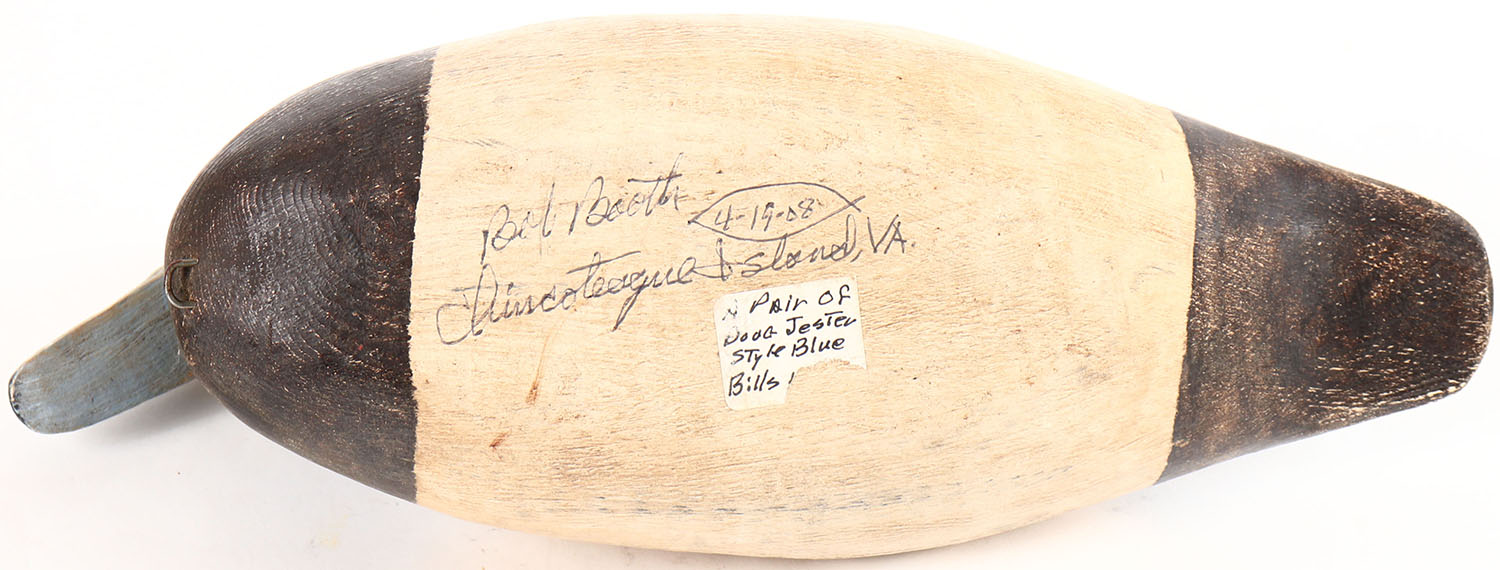 Bob Booth
4-19-08
Chincoteague Island, VA.
A Pair of
Doug Jester
Style Blue
Bills